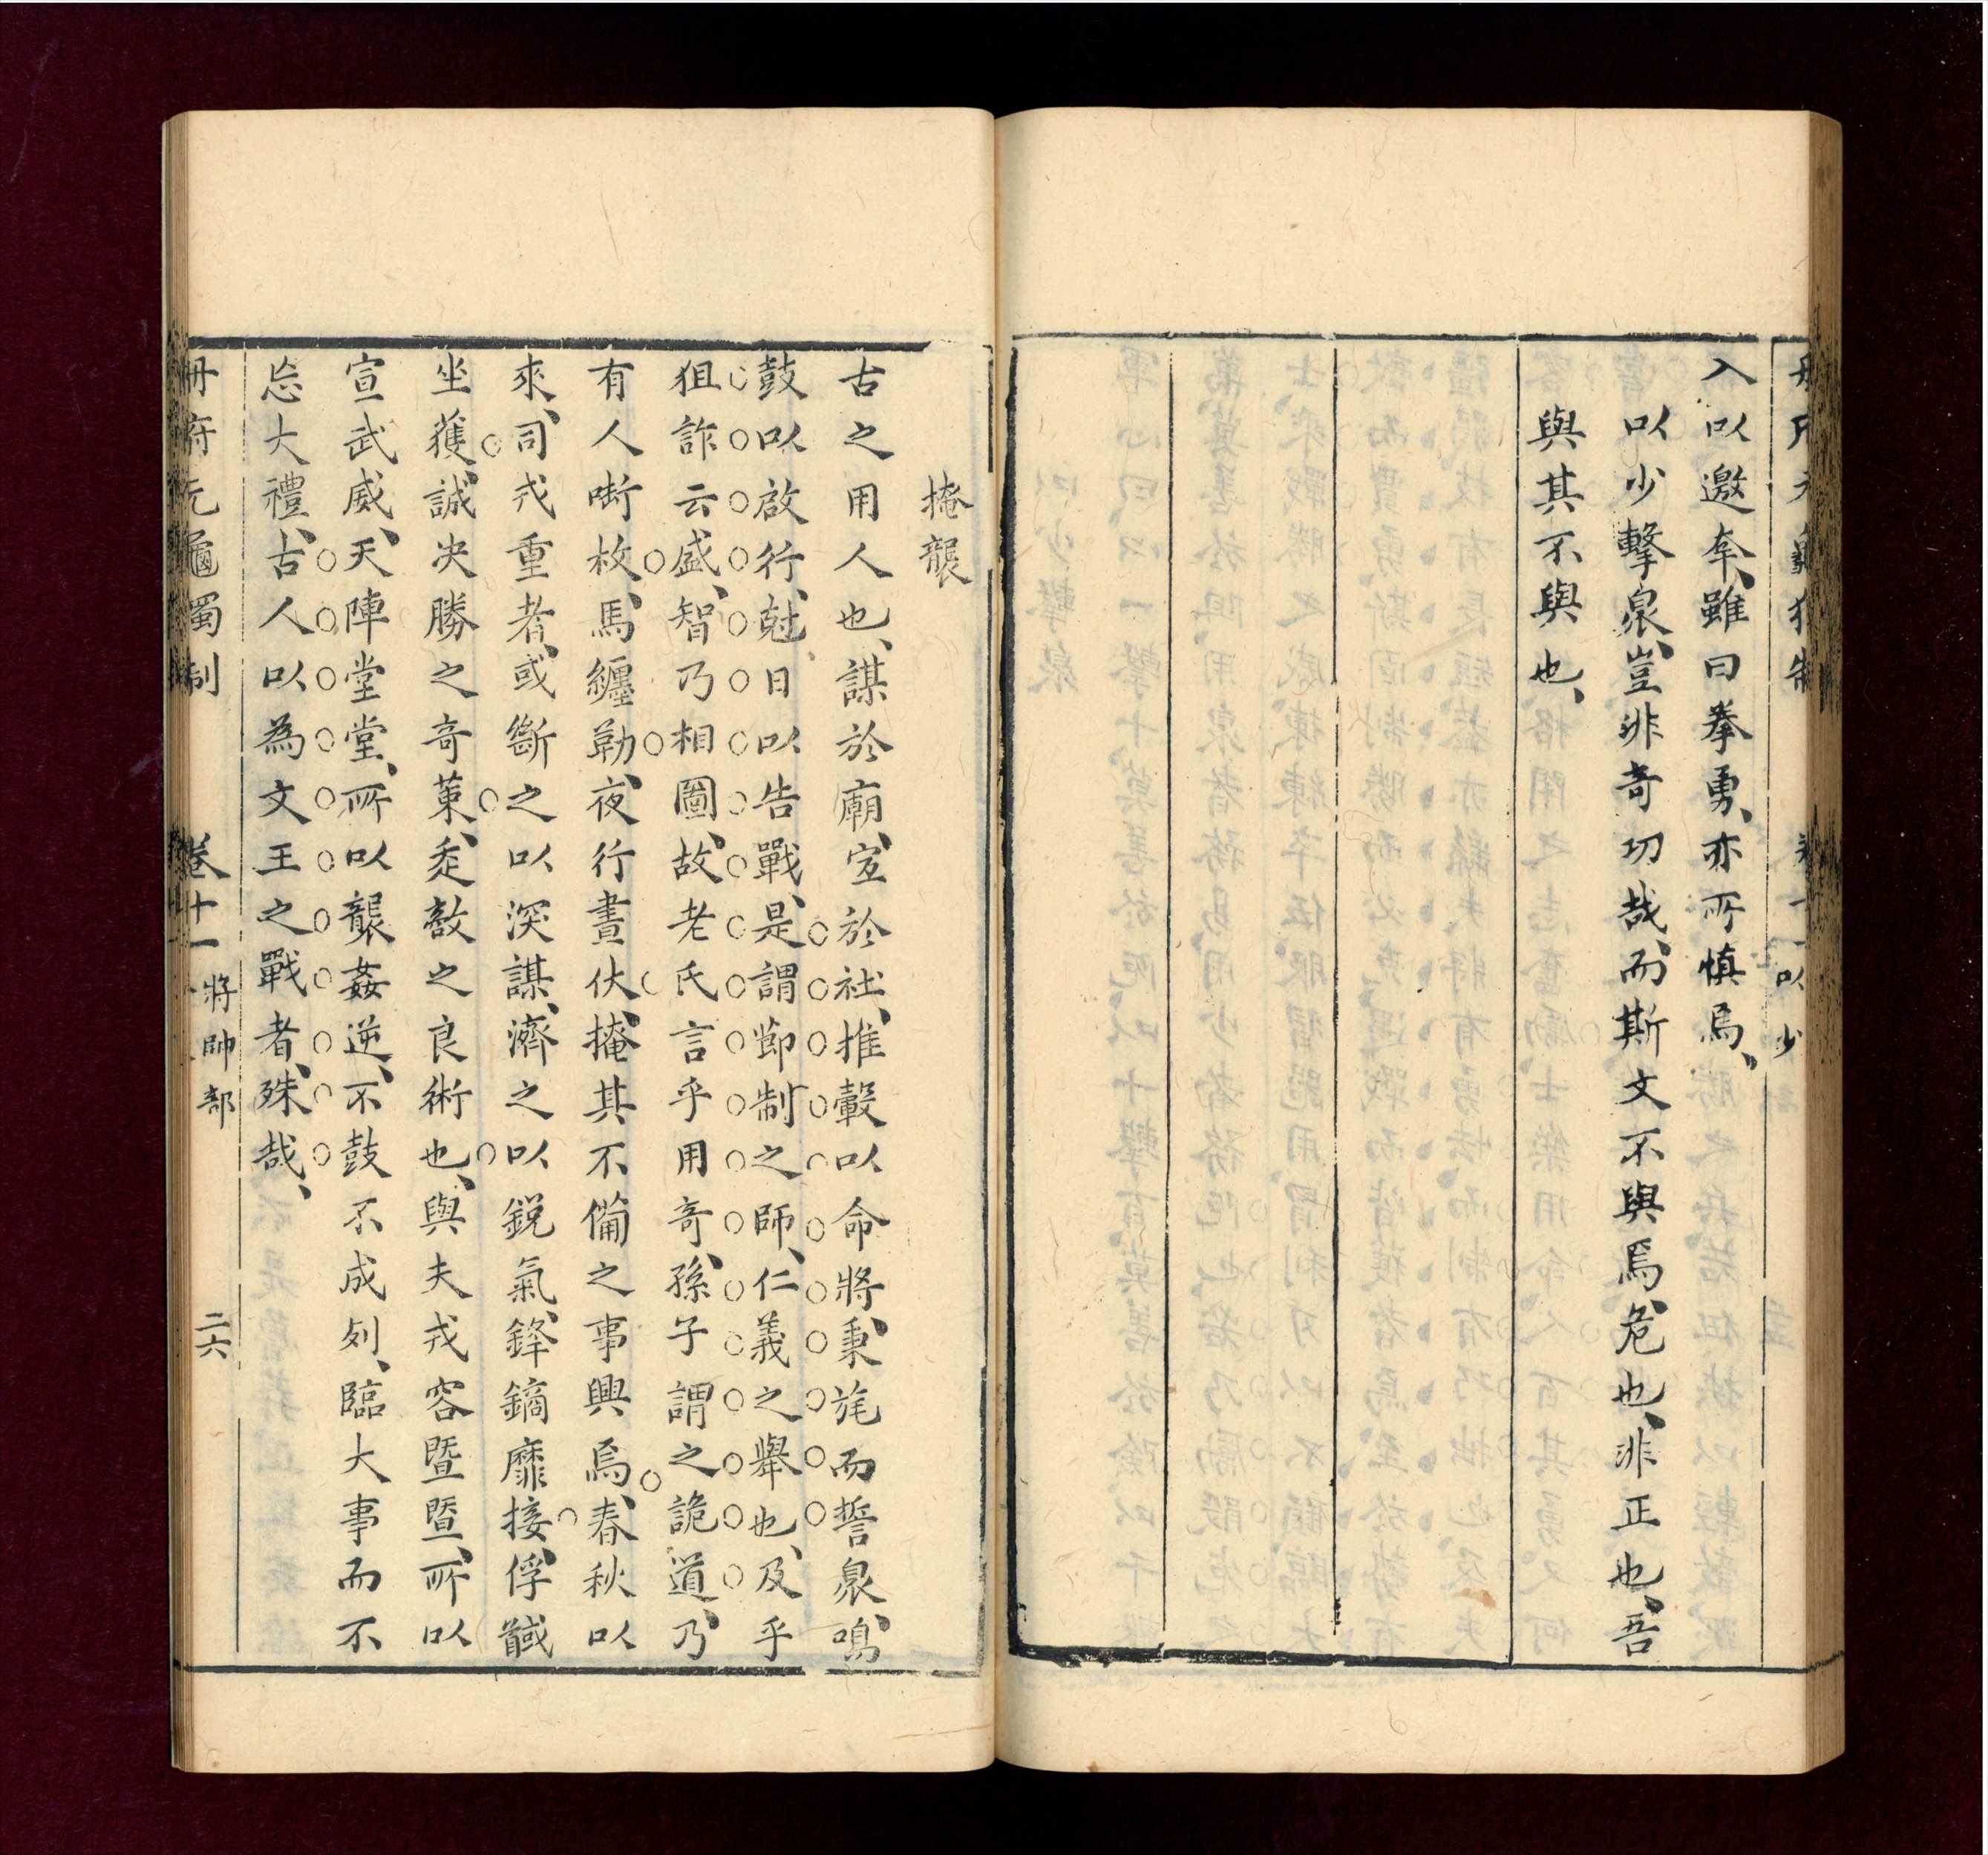 入以邀夲、雖曰拳勇、亦所慎焉、
以少擊衆、豈非奇功哉、而斯文不與焉、危也、非正也、吾
與其不與也、
以少
掩襲
古之用人也、謀於廟、宜於社、推轂以命將、秉旄而誓衆、鳴
鼓以啟行、尅日以告戰、是謂節制之師、仁義之舉也、及乎
狙詐云盛、智乃相圖、故老氏言乎用奇、孫子謂之詭道、乃
有人㗫枚、馬纏勒、夜行晝伏、掩其不備之事興焉、春秋以
來、司戎重者、或斷之以深謀、濟之以鋭氣、鋒鏑靡接、俘馘
坐獲、誠决勝之奇策、走敵之良術也、與夫戎容暨暨、所以
宣武威、天陣堂堂、所以襲姦逆、不鼓不成列、臨大事而不
忘大禮、古人以為文王之戰者、殊哉、
冊府元龜獨制 卷十一 將帥部 二六